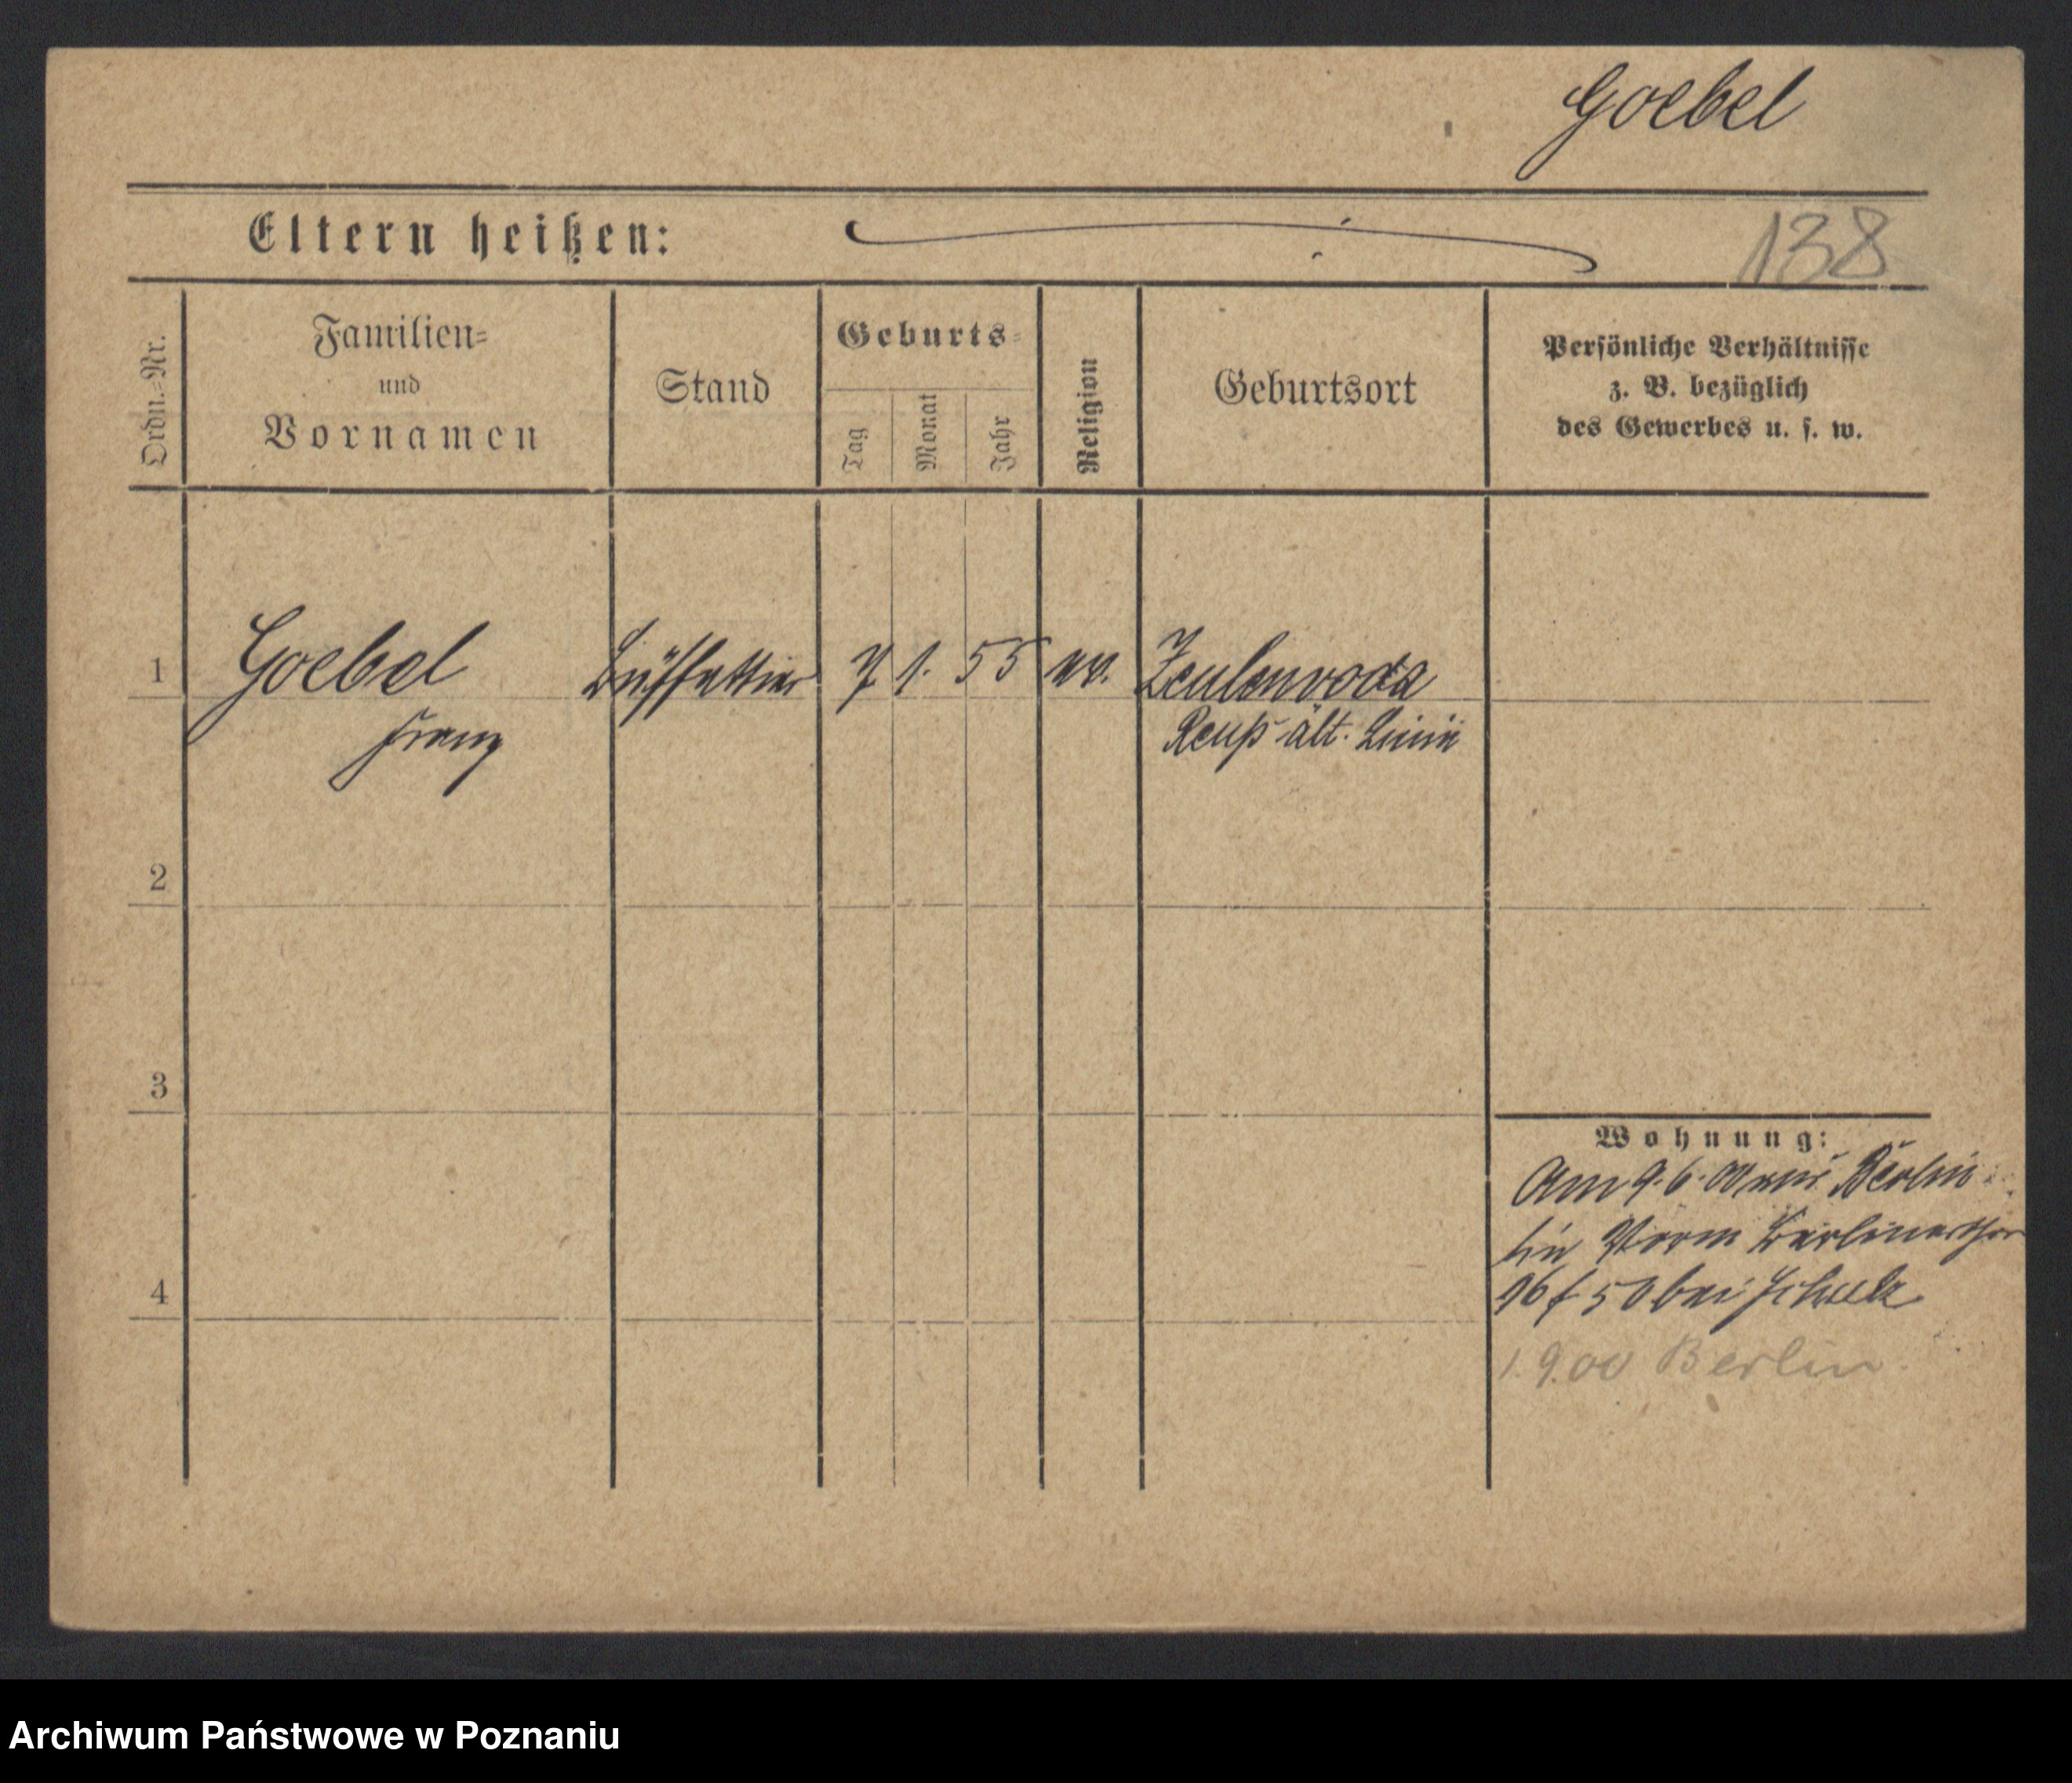 Goebel
Eltern heißen:
138
Ordn.=Nr.
Familien=
und
Vornamen
Stand
Geburts=
Tag
Monat
Jahr
Religion
Geburtsort
Persönliche Verhältnisse
z. B. bezüglich
des Gewerbes u. s. w.
1
Goebel
Franz
Büffettier
7 1. 55
ev.
Zeulenroda
Reuß ält. Linie
2
3
4
Wohnung:
Am 9.6.00 aus Berlin
Berlinerthor
bei Schulz
1.9.00 Berlin.
Archiwum Państwowe w Poznaniu